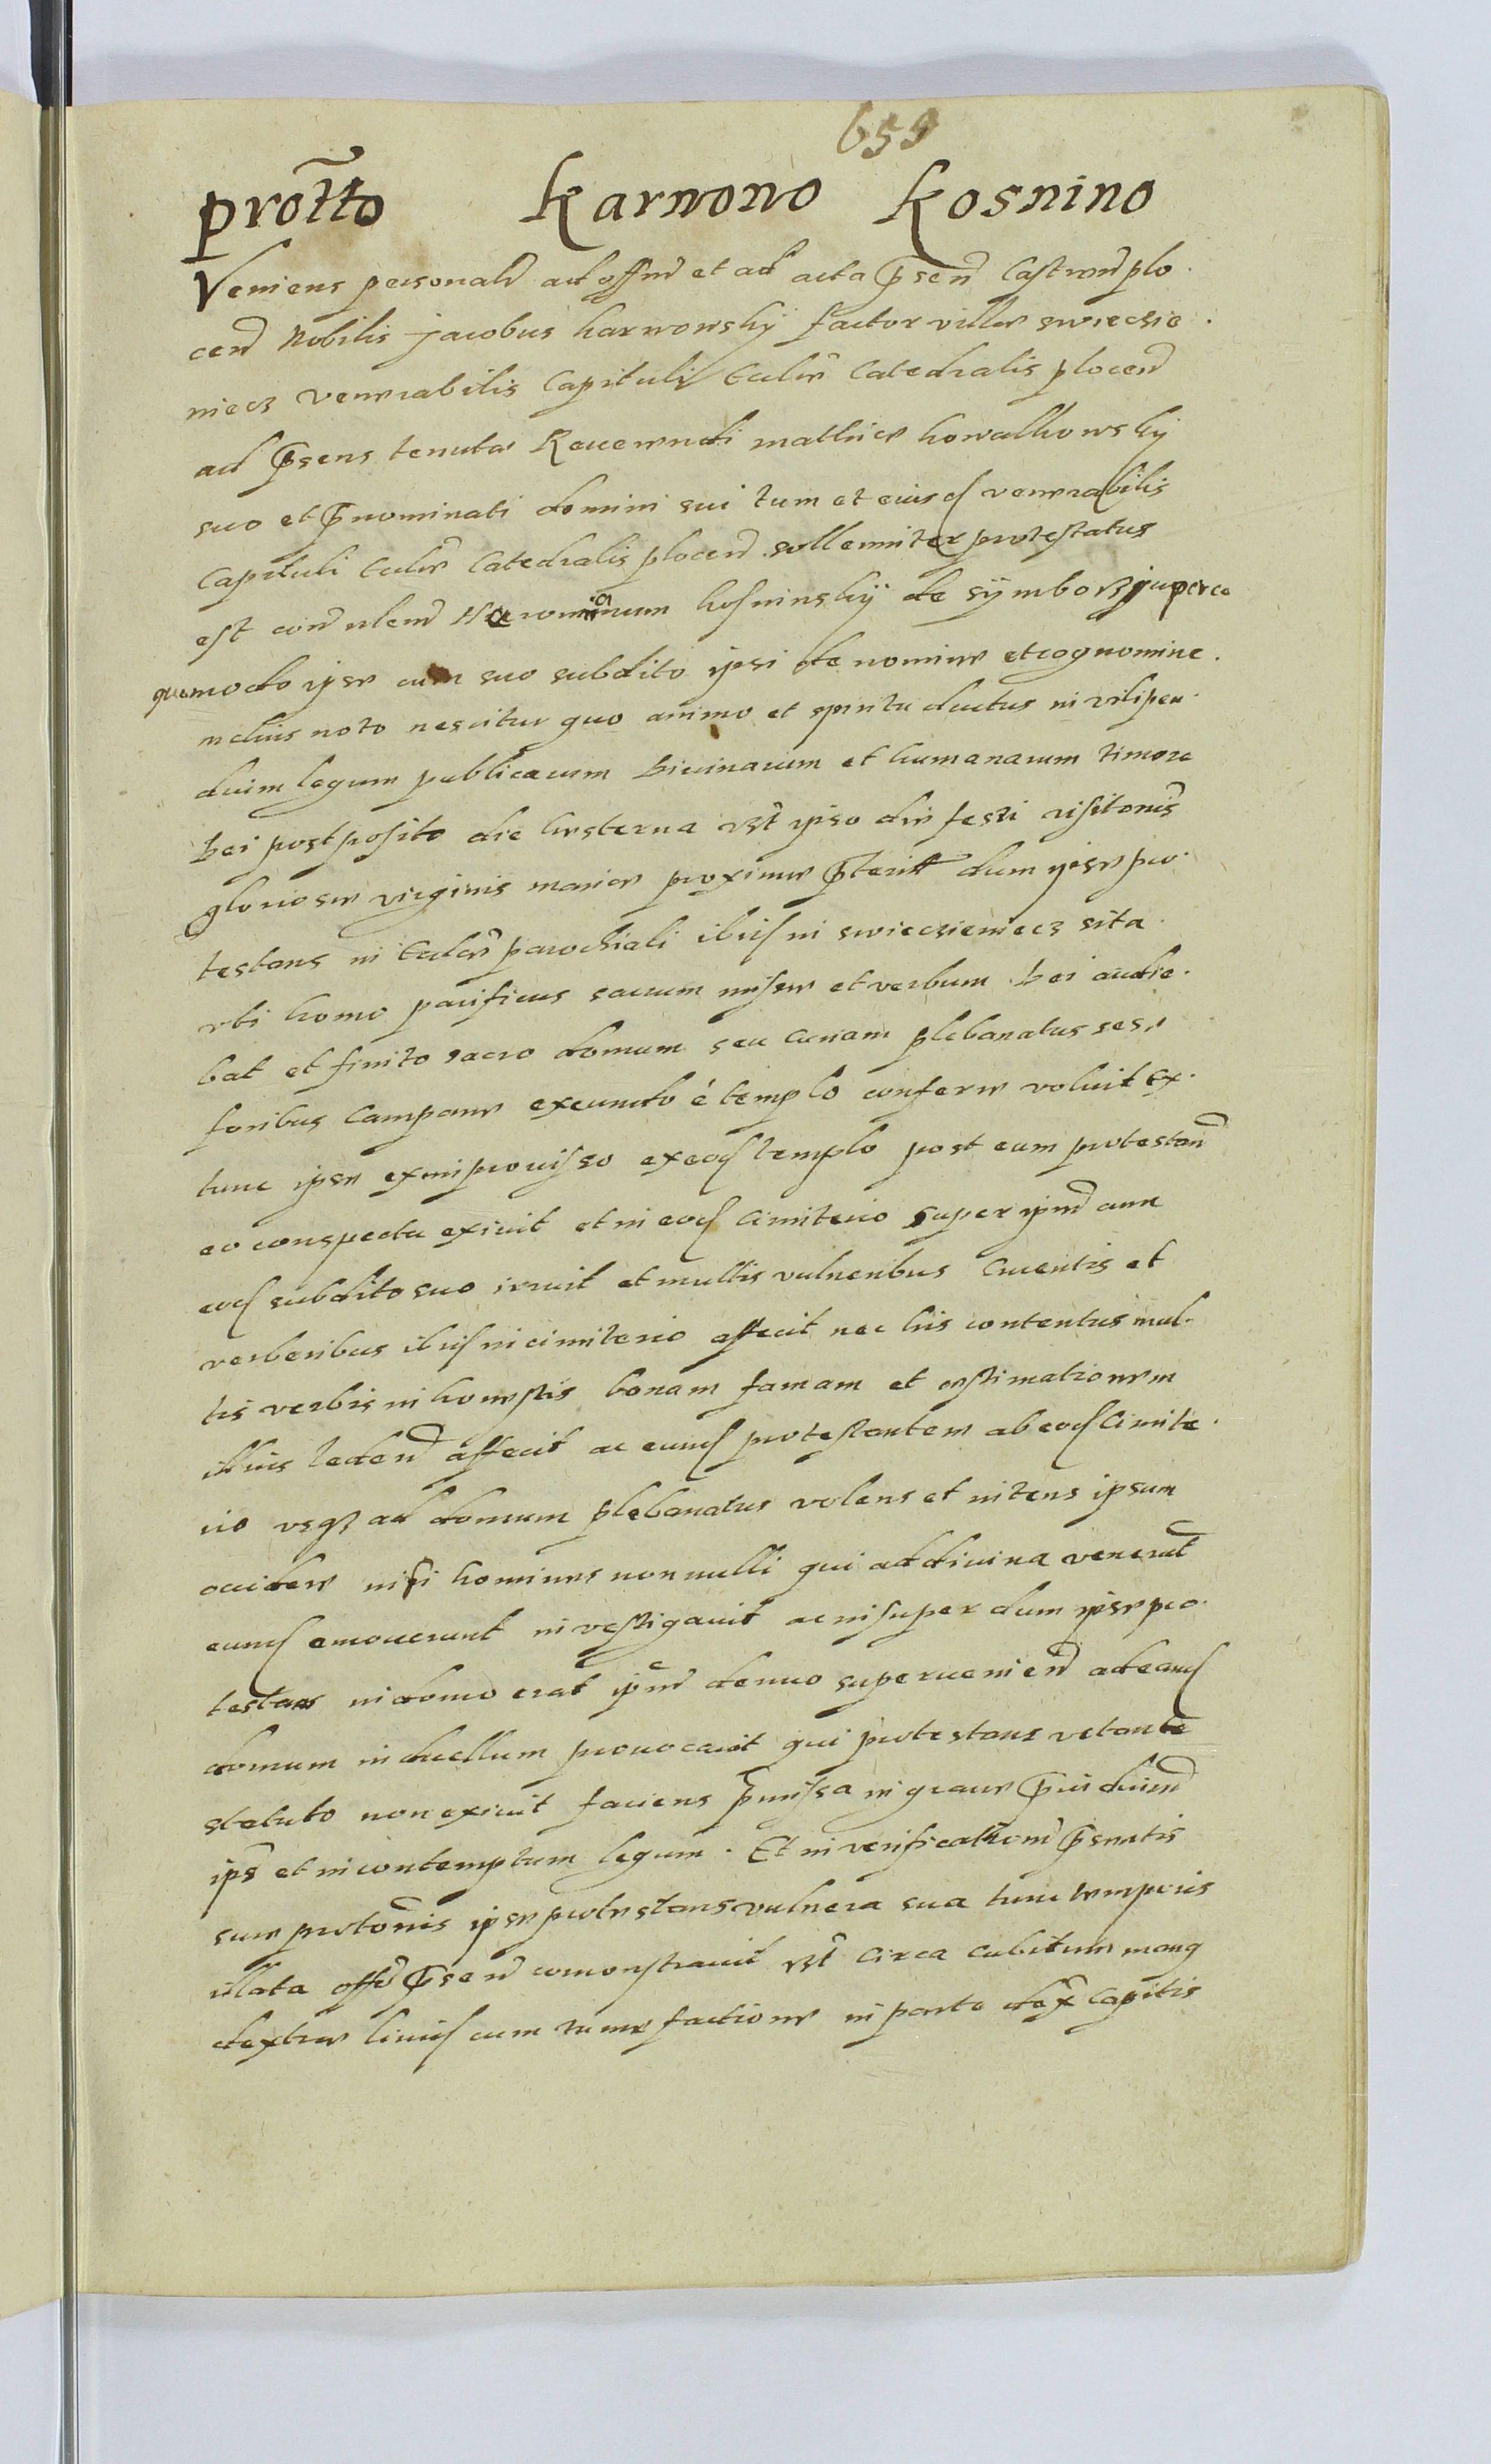 659
protto Karwowo Kosnino
Veniens personalr ad offm et ad acta psen Castren plo
cen Nobilis Jacobus karwowskÿ factor villæ swiecsie
niecz venerabilis Capituli Ecliæ Catedralis plocen
ad psens tenutæ Reuerendi mathiæ kowalkowskÿ
suo et pnominati domini sui tum et eiusd venerabilis
Capituli Ecliæ Catedralis plocen sollenniter protestatus
est con ulem kosninskÿ de sÿmborz
quomodo ipse cum suo subdito ipsi de nomine et cognomine
melius noto nescitur quo animo et spiritu ductus in vilipen
dium legum publicarum Diuinarum et humanarum timore
Dei postposito die hesterna vst ipso die festi visitonis
gloriosæ virginis mariæ proxime pterit dum ipse pro
testans in Eclia parochiali ibid in swiecsieniecz sita
vbi homo pacificus sacrum missæ et verbum Dei audie
bat et finito sacro domum seu curiam plebanatus se
foribus Campanæ exeundo é templo conferre voluit ex
tunc ipse eximprouisso ex eod templo post eum protestan
eo conspecto exiuit et in eod Cimiterio super ipm cum
eod subdito suo irruit et multis vulneribus Cruentis et
verberibus ibid in cimiterio affecit nec his contentus mul
tis verbis inhonestis bonam famam et æstimationem
illius leden affecit ac eund protestantem ab eod Cimite
rio vsq ad domum plebanatus volens et nitens ipsum
occidere nisi homines nonnulli qui ad diuina venerut
eund emouerunt investigauit ac insuper dum ipse pro
testans in domo erat ipm denuo superuenien ad eand
domum in duellum prouocauit qui protestans vetante
statuto non exiuit faciens pmissa in graue piudium
ips et in contemptum legum. Et in verificationem psentis
suæ protonis ipse protestans vulnera sua tunc temporis
illata offo psen comonstrauit vst circa cubitum manq
dextræ liuid cum tumefactione in parte dex Capitis